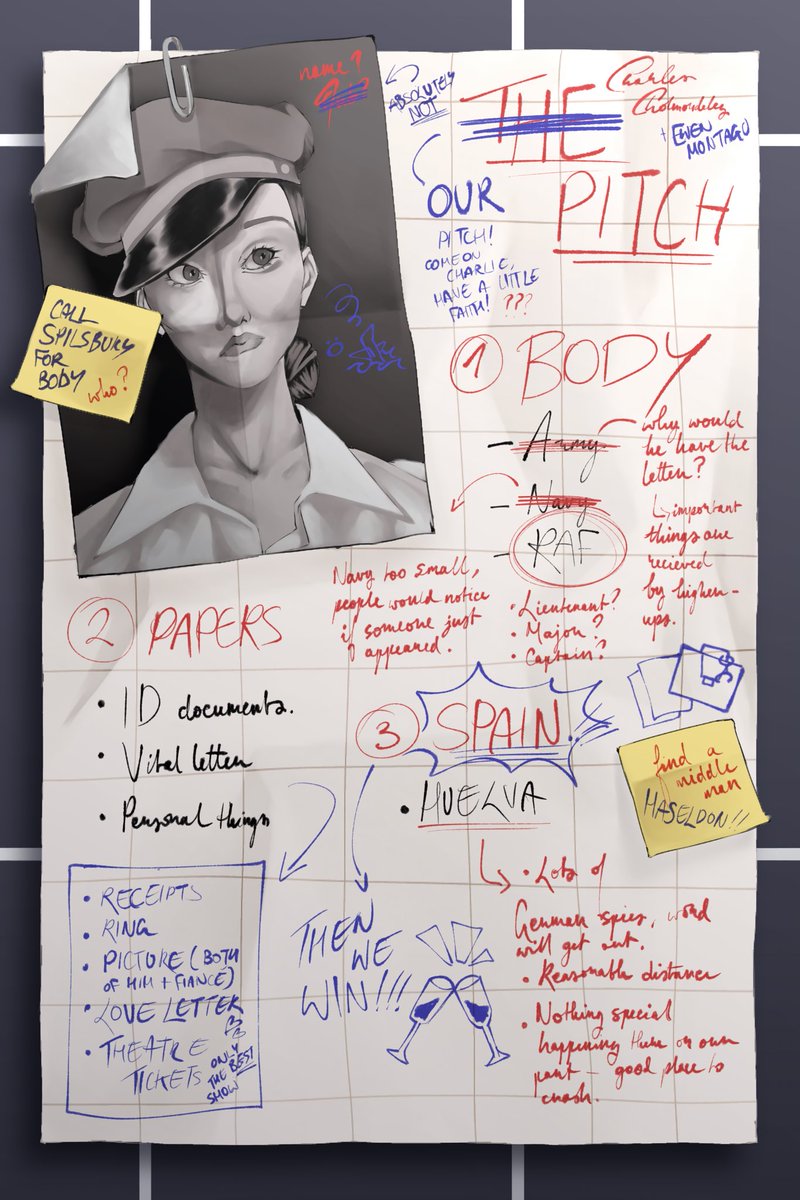 name?
ABSOLUTELY
NOT
THE
PITCH
Charles
Cholmondeley
+ EWEN
MONTAGU
OUR
PITCH!
COME ON
CHARLIE,
HAVE A LITTLE
FAITH! ???
CALL
SPILSBURY
FOR
BODY
who?
1 BODY
- Army
- Navy
- RAF
• Lieutenant?
• Major?
• Captain?
why would
he have the
letter?
↳ important
things are
recieved
by higher-
ups.
Navy too small,
people would notice
if someone just
appeared.
2 PAPERS
• ID documents.
• Vital letter
• Personal things
• RECEIPTS
• RING
• PICTURE (BOTH
OF HIM + FIANCE)
• LOVE LETTER
• THEATRE
TICKETS
ONLY
THE BEST
SHOW
3 SPAIN!!
• HUELVA
find a
middle
man
HASELDON!!
• Lots of
German spies, word
will get out.
• Reasonable distance
• Nothing special
happening there on own
part – good place to
crash.
THEN
WE
WIN!!!